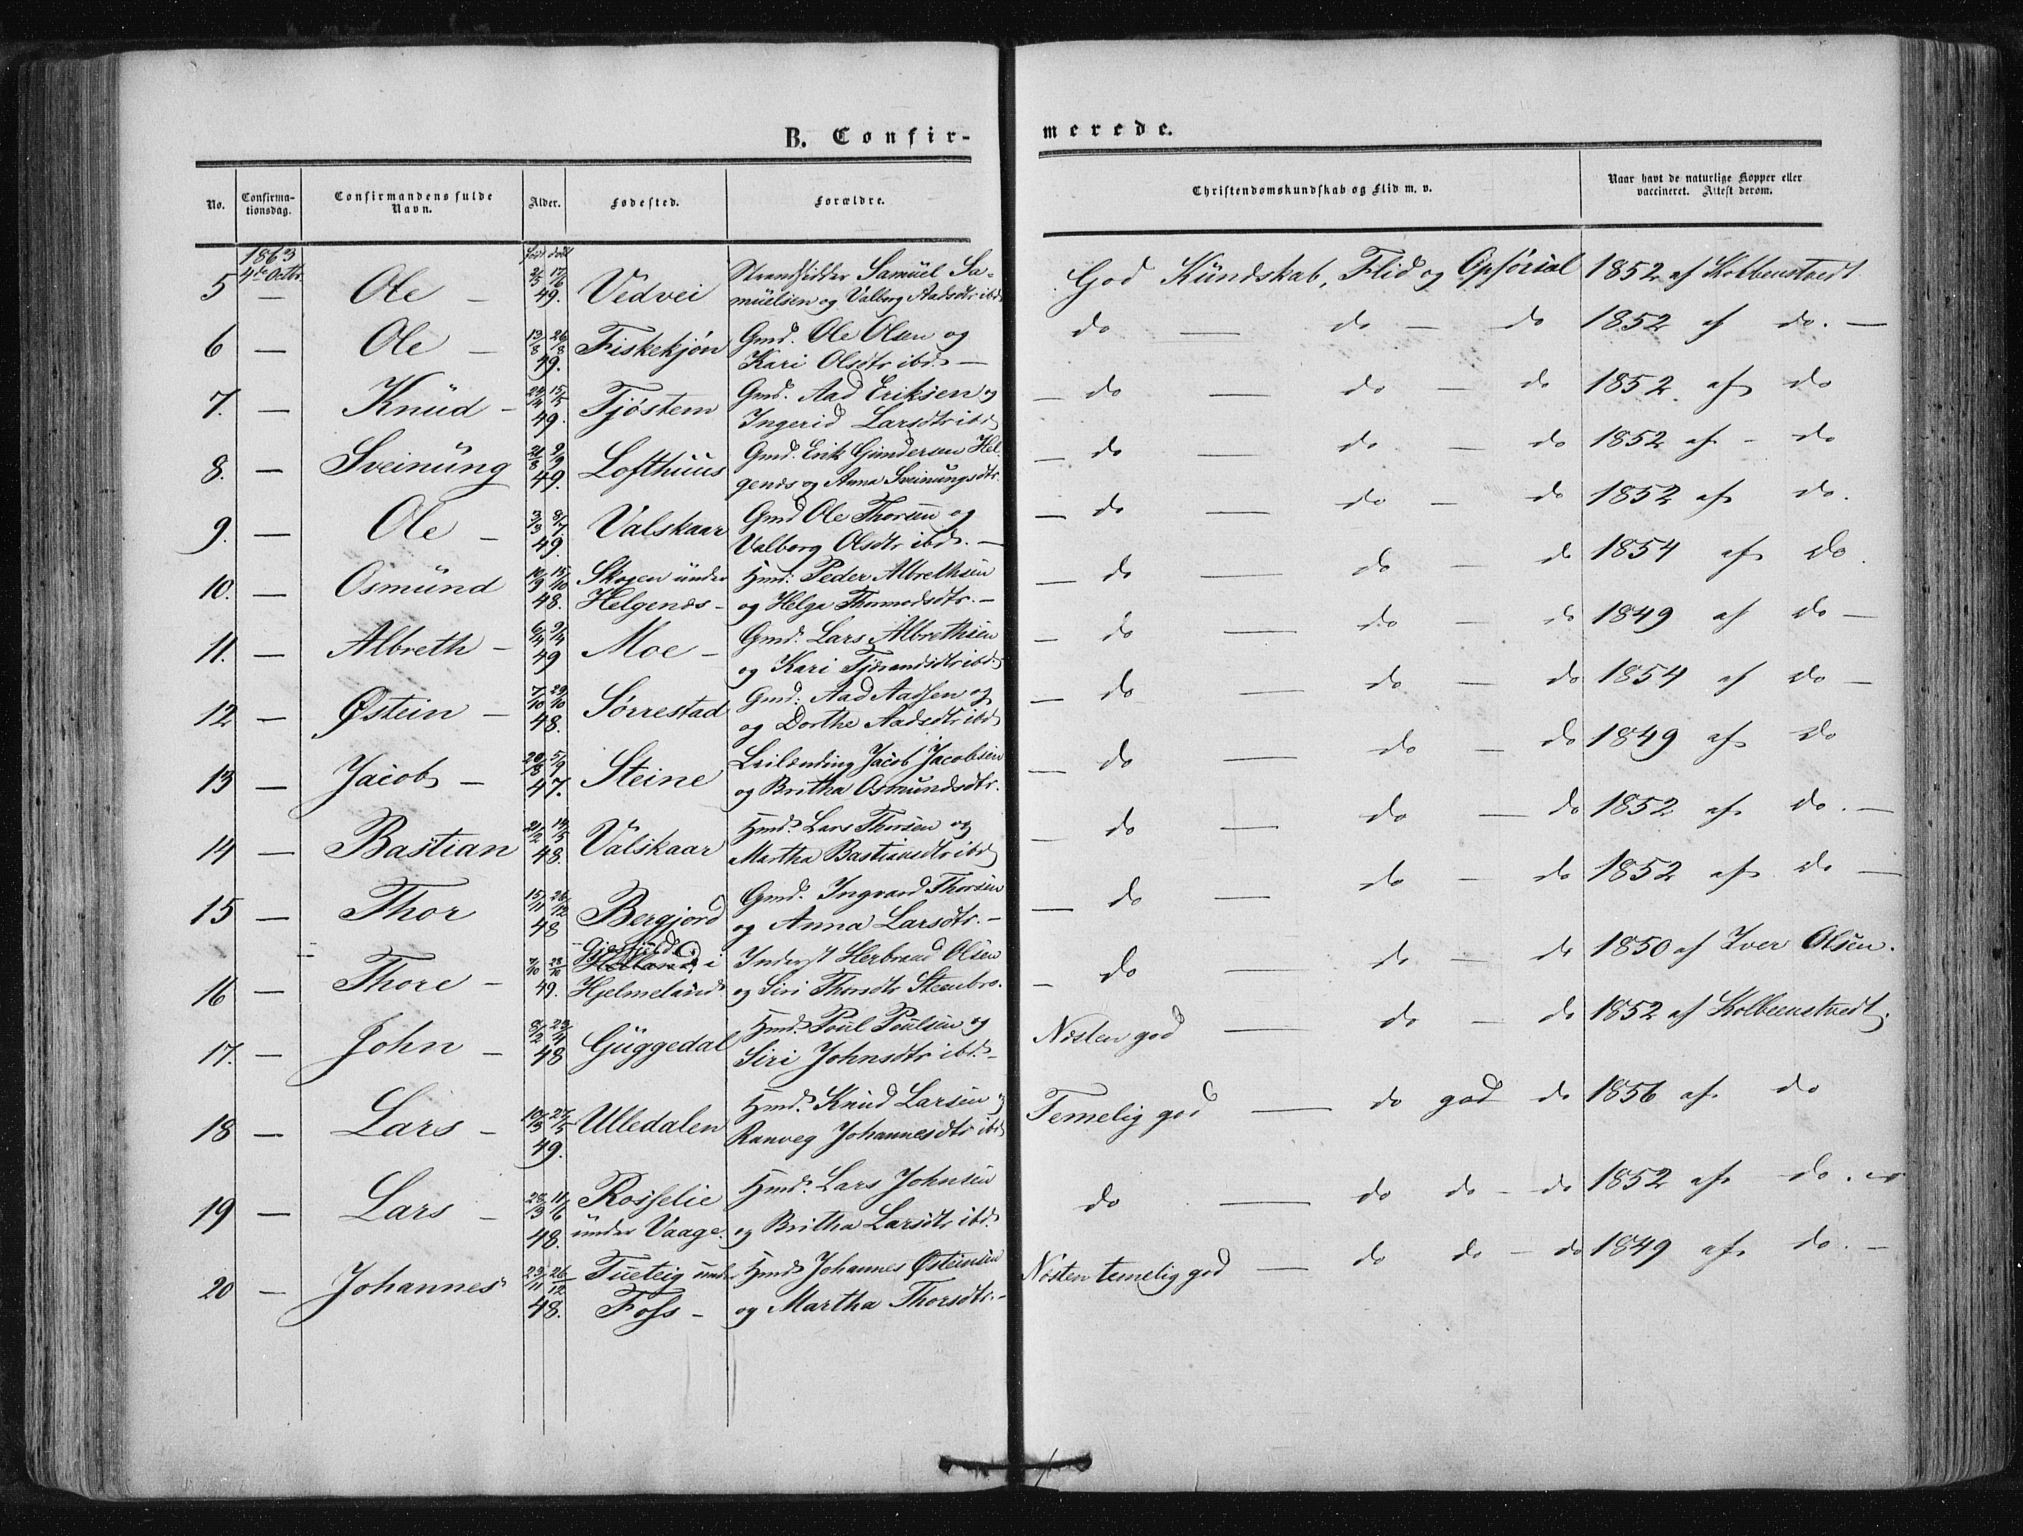 B. Confir-
merede.
No.
Confirma-
tionsdag.
Confirmandens fulde
Navn.
Alder.
Fødested.
Forældre.
Christendomskundskab og Flid m. v.
Naar havt de naturlige Kopper eller
vaccineret. Attest derom.
1863
4de Octbr.
født døbt
5 — Ole — 49. Vedvei Strandsidder Samuel Sa-
muelsen og Valborg Aadsdtr ibd
God Kundskab, Flid og Opførsel 1852 af Kolbenstvedt
6 — Ole — 13/8 26/8 49. Fiskekjøn Gmd. Ole Olsen og
Kari Olsdtr ibd. —
do — do — do 1852 af do. —
7. — Knud — 24/4 15/5 49. Tjøstem Gmd. Aad Eriksen og
Ingerid Larsdtr ibd
— do — do — do 1852 af do
8. — Sveinung 21/8 9/9 49. Lofthuus Gmd. Erik Gundersen Hel-
genæs og Anna Sveinungsdtr.
— do — do — do 1852 af - do
9. — Ole — 3/3 8/7 49. Valskaar Gmd Ole Thorsen og
Valborg Olsdtr ibd. —
— do — do — do 1852 af do.
10. — Osmund 10/9 15/10 48. Skogen under
Helgenæs - Hmd: Peder Albrethsen
og Helga Thormodsdtr. —
— do — do — do 1854 af do.
11. — Albreth — 49 Moe — Gmd. Lars Albrethsen
og Kari Tjerandsdtr ibd
— do — do — do 1849 af do —
12 — Østein — 7/10 29/10 48. Sørrestad Gmd: Aad Aadsen og
og Dorthe Aadsdtr ibd
— do — do — do 1854 af do —
13 — Jacob — 20/8 5/9 47. Steine Leilænding Jacob Jacobsen
og Britha Osmundsdtr.
— do — do — do 1849 af do
14 — Bastian 21/2 14/5 48. Valskaar Hmd. Lars Thorsen og
Martha Bastiansdtr ibd
— do — do — do 1852 af do. —
15 — Thor 15/11 26/12 48 Bergjord Gmd. Ingvard Thorsen
og Anna Larsdtr. —
— do — do — do 1852 af do —
16 — Thore — 7/10 28/10 49. i
Hjelmeland Inderst Herbrand Olsen
og Siri Thorsdtr Steenbro.
— do — do — do 1850 af Iver Olsen.
17. — John — 8/2 48 Guggedal Hmd. Poul Poulsen og
Siri Johnsdtr ibd. —
Næsten god — do — do 1852 af Kolbeenstvedt.
18 — Lars — 10/3 27/5 49. Ulledalen Hmd. Knud Larsen og
Ranveg Johannesdtr ibd
Temelig god — do god do 1856 af do
19 — Lars — 28/3 11/6 48. Rosselie
under Vaage. Hmd. Lars Johnsen
og Britha Larsdtr ibd.
do — do do — do 1852 af do.
20 — Johannes 23/11 26/12 48. Tueteig under
Foss — Hmd. Johannes Østeinsen
og Martha Thorsdtr. —
Næsten temelig god — do do — do 1849 af do. —